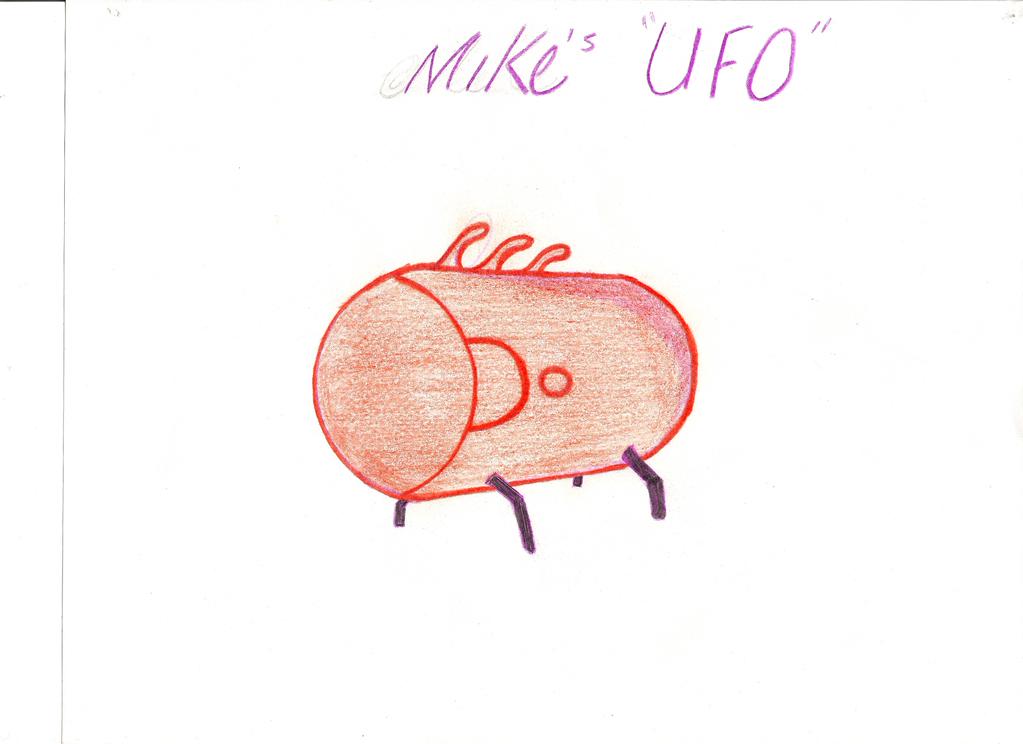 Mike's "UFO"